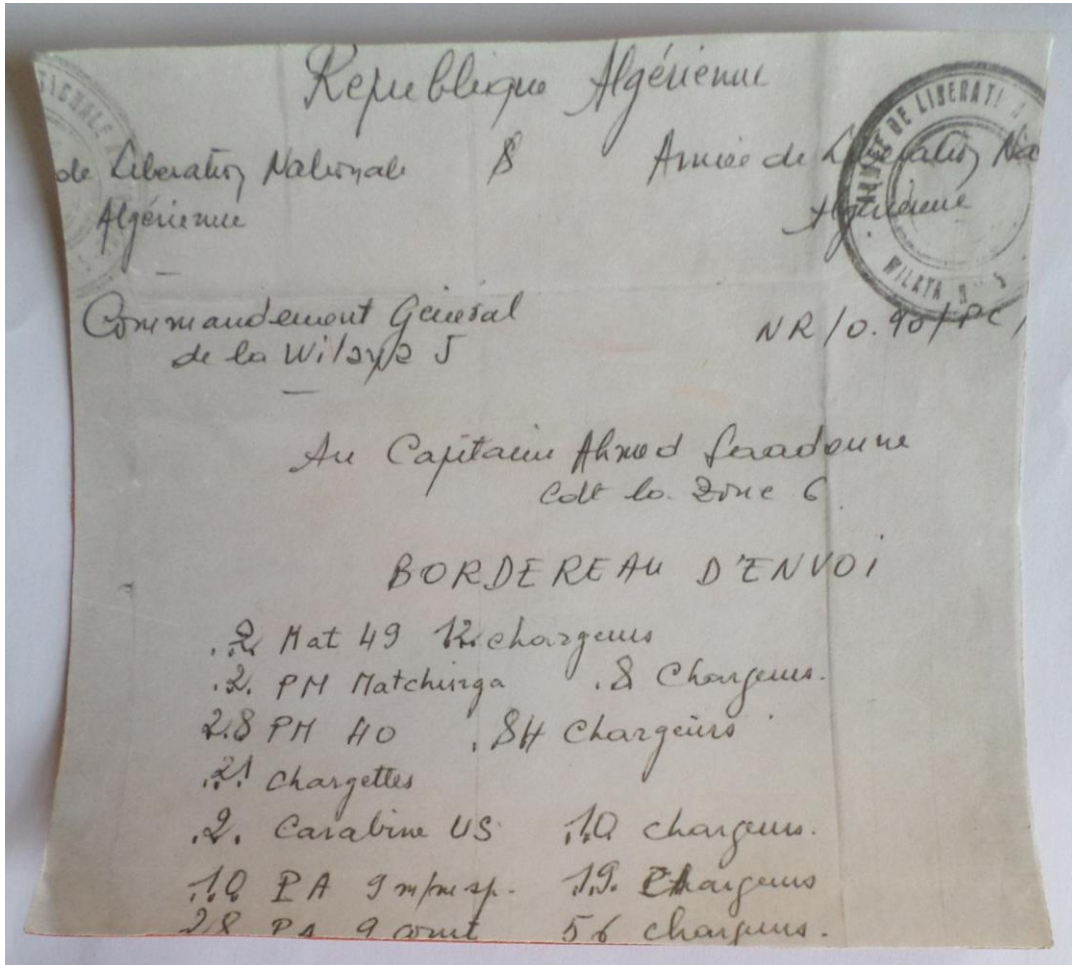 Republique Algérienne
de Liberation Nationale & Armée de Liberation Na
Algérienne Algérienne
TIONALE
ARMEE DE LIBERATI
WILAYA N° 5
Commandement Général
de la Wilaya 5
NR/0.90/PC/
Au Capitaine Ahmed
Cdt la Zone 6
BORDEREAU D'ENVOI
.2. Mat 49 12 chargeurs
.2. PM Matchinga .8 Chargeurs.
2.8 PM 40 .84 Chargeurs
.21 chargettes
.2. Carabine US .10 chargeurs.
.10 PA 9 m/m esp. .19. Chargeurs
28 PA 9 court 56 chargeurs.